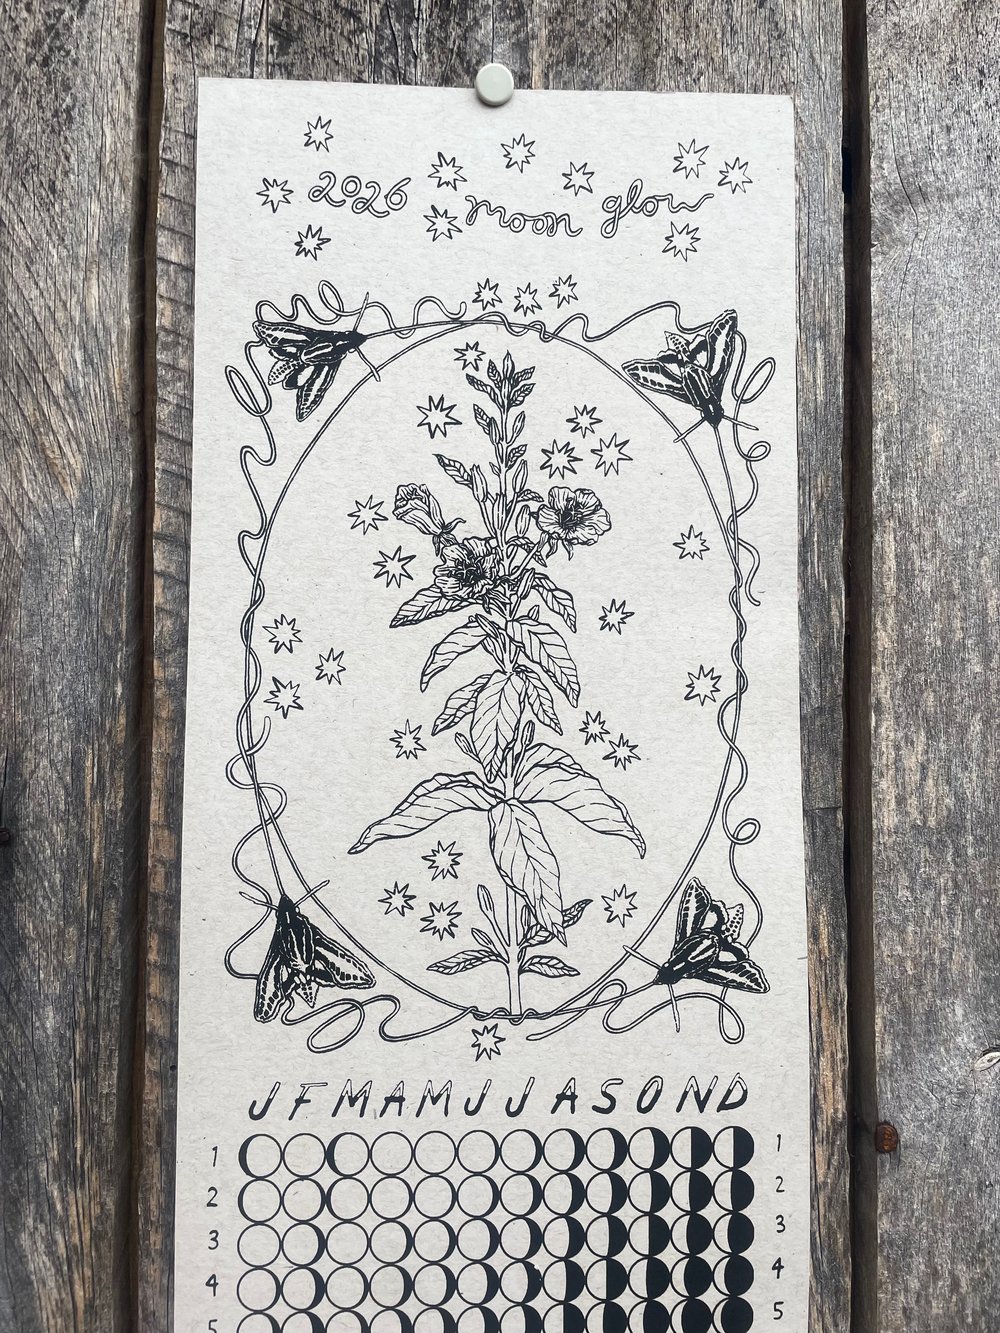 2026 moon glow
J F M A M J J A S O N D
1 1
2 2
3 3
4 4
5 5